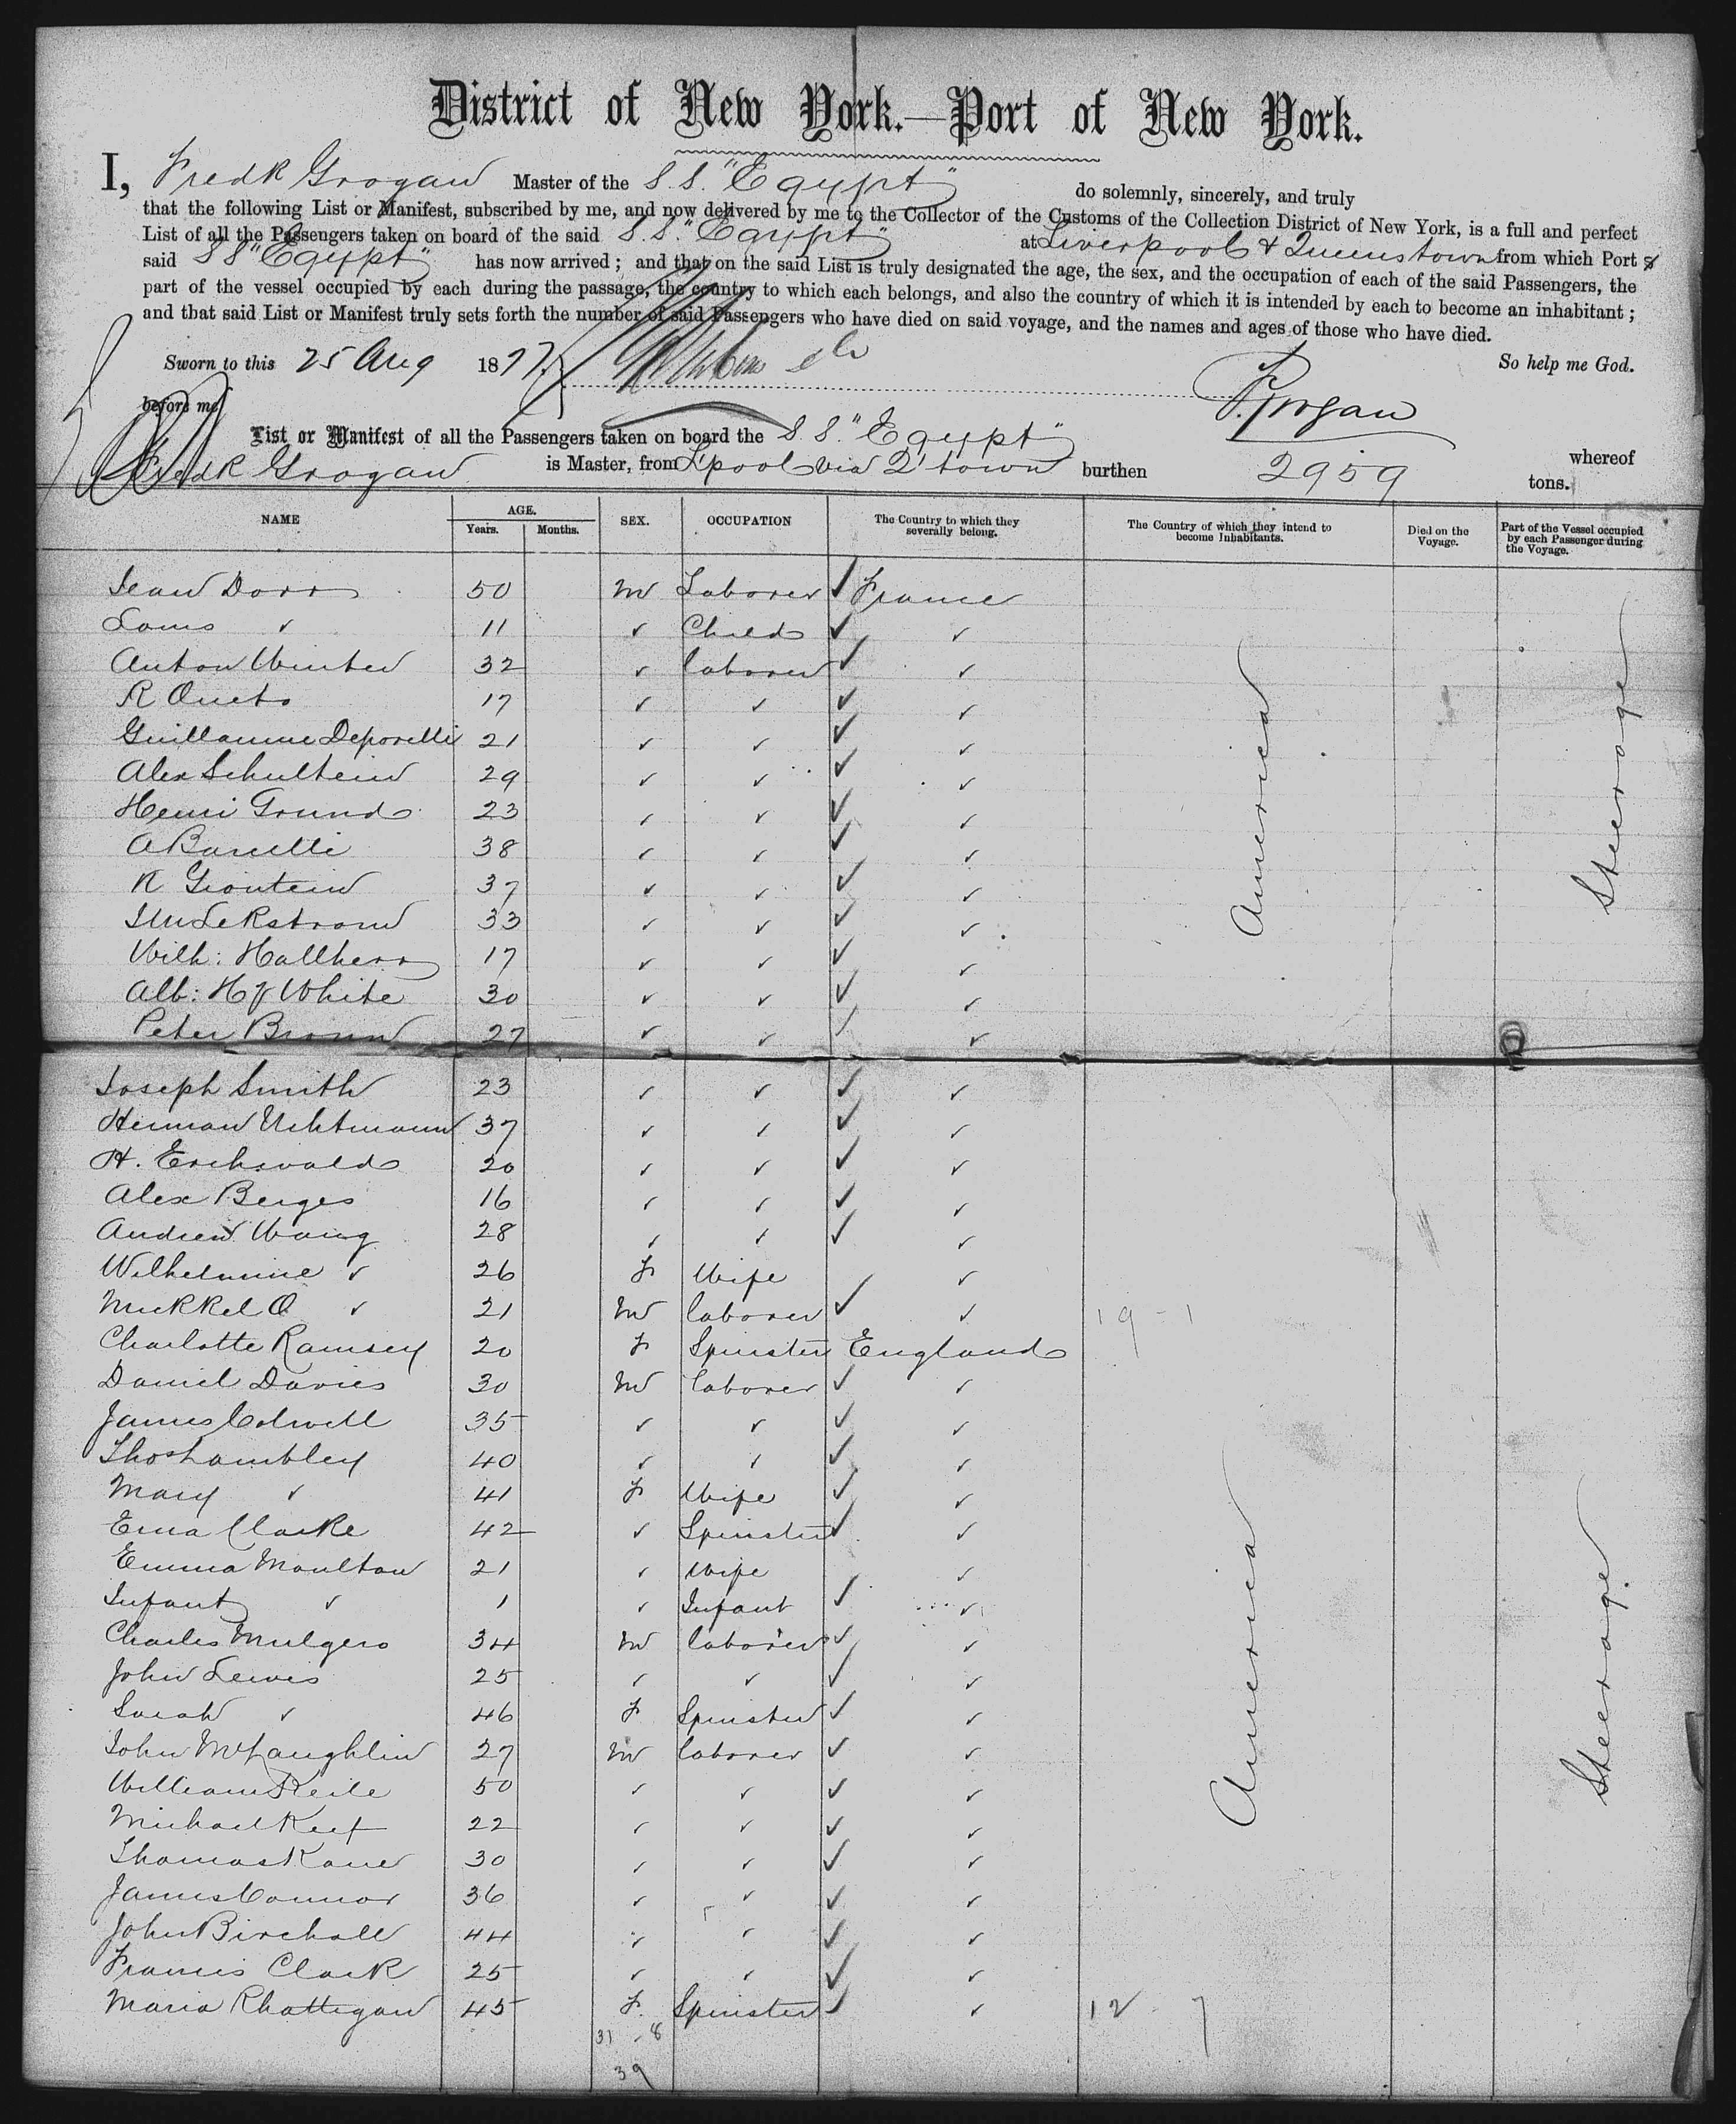 District of New York.—Port of New York.
I, Fredk Grogan Master of the S.S. "Egypt" do solemnly, sincerely, and truly
that the following List or Manifest, subscribed by me, and now delivered by me to the Collector of the Customs of the Collection District of New York, is a full and perfect
List of all the Passengers taken on board of the said S.S. "Egypt" at Liverpool & Queenstown from which Port
said S S "Egypt" has now arrived; and that on the said List is truly designated the age, the sex, and the occupation of each of the said Passengers, the
part of the vessel occupied by each during the passage, the country to which each belongs, and also the country of which it is intended by each to become an inhabitant;
and that said List or Manifest truly sets forth the number of said Passengers who have died on said voyage, and the names and ages of those who have died.
Sworn to this 25 Aug 1877 So help me God.
before me F. Grogan
List or Manifest of all the Passengers taken on board the S.S. "Egypt" whereof
Fredk Grogan is Master, from L'pool via Q'town burthen 2959 tons.
NAME AGE. SEX. OCCUPATION The Country to which they severally belong. The Country of which they intend to become Inhabitants. Died on the Voyage. Part of the Vessel occupied by each Passenger during the Voyage.
Years. Months.
Jean Dorr 50 M Laborer ✓ France
Louis ✓ 11 ✓ Child ✓ ✓
Anton Winter 32 ✓ laborer ✓ ✓
R 17 ✓ ✓ ✓ ✓
Guillaume 21 ✓ ✓ ✓ ✓
Alex Schultein 29 ✓ ✓ ✓ ✓
Henri Grund 23 ✓ ✓ ✓ ✓
A 38 ✓ ✓ ✓ ✓
37 ✓ ✓ ✓ ✓
33 ✓ ✓ ✓ ✓
Wilh: Hallherr 17 ✓ ✓ ✓ ✓
Alb: Hy White 30 ✓ ✓ ✓ ✓
Peter Brown 27 ✓ ✓ ✓ ✓
America
Steerage
Joseph Smith 23 ✓ ✓ ✓ ✓
Herman 37 ✓ ✓ ✓ ✓
H. 20 ✓ ✓ ✓ ✓
Alex Berges 16 ✓ ✓ ✓ ✓
Andrew Wang 28 ✓ ✓ ✓ ✓
Wilhelmine ✓ 26 F Wife ✓
Mikkel O ✓ 21 M laborer ✓ ✓ 19 - 1
Charlotte Ramsey 20 F Spinster England
Daniel Davies 30 M laborer ✓ ✓
James Colwell 35 ✓ ✓ ✓ ✓
Thos Lambley 40 ✓ ✓ ✓ ✓
Mary ✓ 41 F Wife ✓ ✓
Clarke 42 ✓ Spinster ✓ ✓
Emma Moulton 21 ✓ Wife ✓
Infant ✓ 1 ✓ Infant ✓ ✓
Charles Mulgers 34 M laborer ✓ ✓
John Lewis 25 ✓ ✓ ✓ ✓
Sarah ✓ 46 F Spinster ✓ ✓
John McLaughlin 27 M laborer ✓ ✓
William 50 ✓ ✓ ✓ ✓
Michael 22 ✓ ✓ ✓ ✓
Thomas Kane 30 ✓ ✓ ✓ ✓
James Connor 36 ✓ ✓ ✓ ✓
John Birchall 44 ✓ ✓ ✓ ✓
Francis Clark 25 ✓ ✓ ✓ ✓
Maria Rhattigan 45 F. Spinster ✓ ✓ 12 - 7
America
Steerage
31 - 8
39